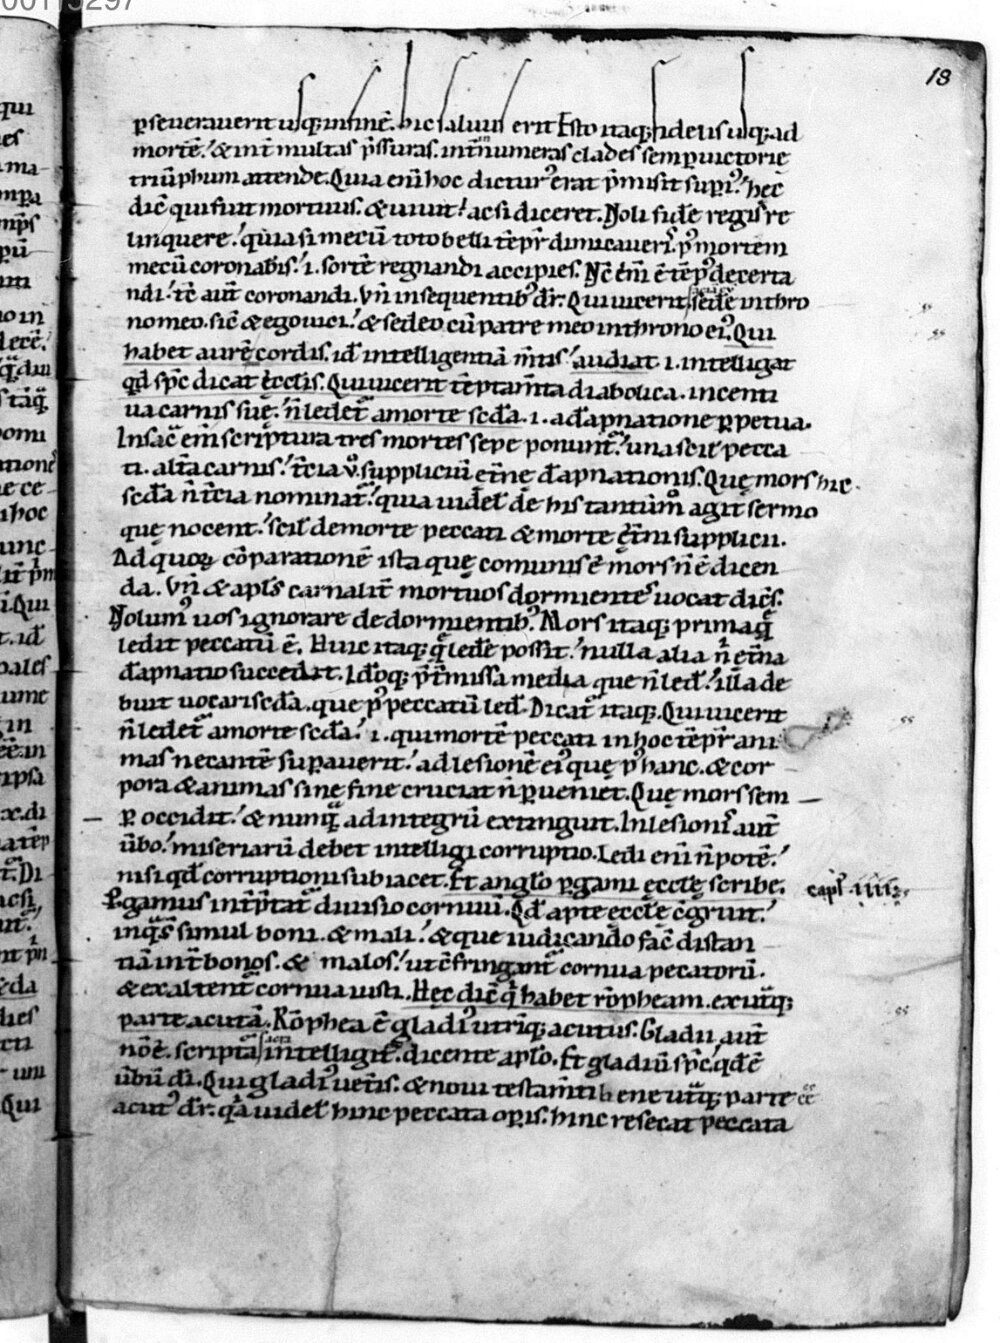 18
ꝑseuerauerit usq; in finē. hic saluus erit Esto itaq; fidelis usq; ad
mortē. & int̄ multas p̄ssuras. int̄ innumeras clades semꝑ uictorię
triūphum attende. Quia eni hoc dictur᾽ erat p̄misit supi᾽. hęc
dic̄ qui fuit mortuus. & uiuit. ac si diceret. Noli fid̄e regis re
linquere. quia si mecū toto belli tēpr̄ dimicaueris. p᾽ mortem
mecū coronabis. i. sortē regnandi accipies. Nc̄ em̄ ē tēp᾽ decerta
ndi. tc̄ aut̄ coronandi. Vn̄ in sequentib᾽ dr̄. Qui uicerit sedēe in thro
no meo. sic̄ & ego uici. & sedeo cū patre meo in throno ei᾽. Qui
habet aurē cordis. id̄ intelligentiā m̄tis. audiat .i. intelligat
qd̄ sp̄c dicat ęcclis. Qui uicerit tēptam̄ta diabolica. incenti
ua carnis suę. n̄ ledet᾽ a morte scd̄a .i. a dāpnatione ꝑpetua.
In sac̄ em̄ scriptura tres mortes sepe ponunt᾽. una scil̄ pecca
ti. alt̄a carnis. t̄cia v̊ supplicui ęt̄nę dāpnationis. Quę mors hic
scd̄a n̄ t̄cia nominat᾽. quia uidel̄ de his tantūm̊ agit sermo
quę nocent. scil̄ de morte peccati & morte ęt̄ni supplicii.
Ad quoꝝ cōparationē ista quę comunis ē mors n̄ ē dicen
da. Vn̄ & apls̄ carnalit̄ mortuos dormientes uocat dicēs.
Nolum᾽ uos ignorare de dormientib᾽. Mors itaq; prima q̄
ledit peccatū ē. Huic itaq; q̄ led̄e possit. nulla alia n̄ et̄na
dāpnatio succedit. Idoq; p̄t̄missa media que n̄ led̄. illa de
buit uocari scd̄a. que p᾽ peccatū led̄. Dicat᾽ itaq;. Qui uicerit
n̄ ledet᾽ a morte scd̄a. i. qui mortē peccati in hoc tēpr̄ ani
mas necantē suꝑauerit. ad lesionē ei᾽ quę p᾽ hanc. & cor
pora & animas sine fine cruciat n̄ ꝑueniet. Quę mors sem
ꝑ occidit. & nunq̄ ad integrū extinguit. In lesionis aut̄
ūbo. miseriarū debet intelligi corruptio. Ledi eni n̄ potē.
nisi qd̄ corruptioni subiacet. Et anglo ꝑgami ęcclę scribe.
capl̄. iiii.
Ꝑgamus int̄p̄tat᾽ diuisio cornuū. Qd̄ apte eccl̄e c̄gruit.
in q̄ s̄ simul boni. & mali. & que iudicando fac̄ distan
tiā int̄ bonos. & malos. ut c̄fringant᾽ cornua pecatorū.
& exaltent᾽ cornua iusti. Hęc dic̄ q̄ habet rōpheam. ex utq;
parte acutā. Rōphea ē gladi᾽ utriq; acutus. Gladii aut̄
nōē. scriptā sacrā intelligit᾽. dicente aplo. Et gladiū sp̄c qd̄ ē
ūbū di. Qui gladi᾽ uet̄is. & noui testam̄ti bene utq; parte eē
acut᾽ dr̄. q̄a uidel̄ hinc peccata oꝑis. hinc resecat peccata